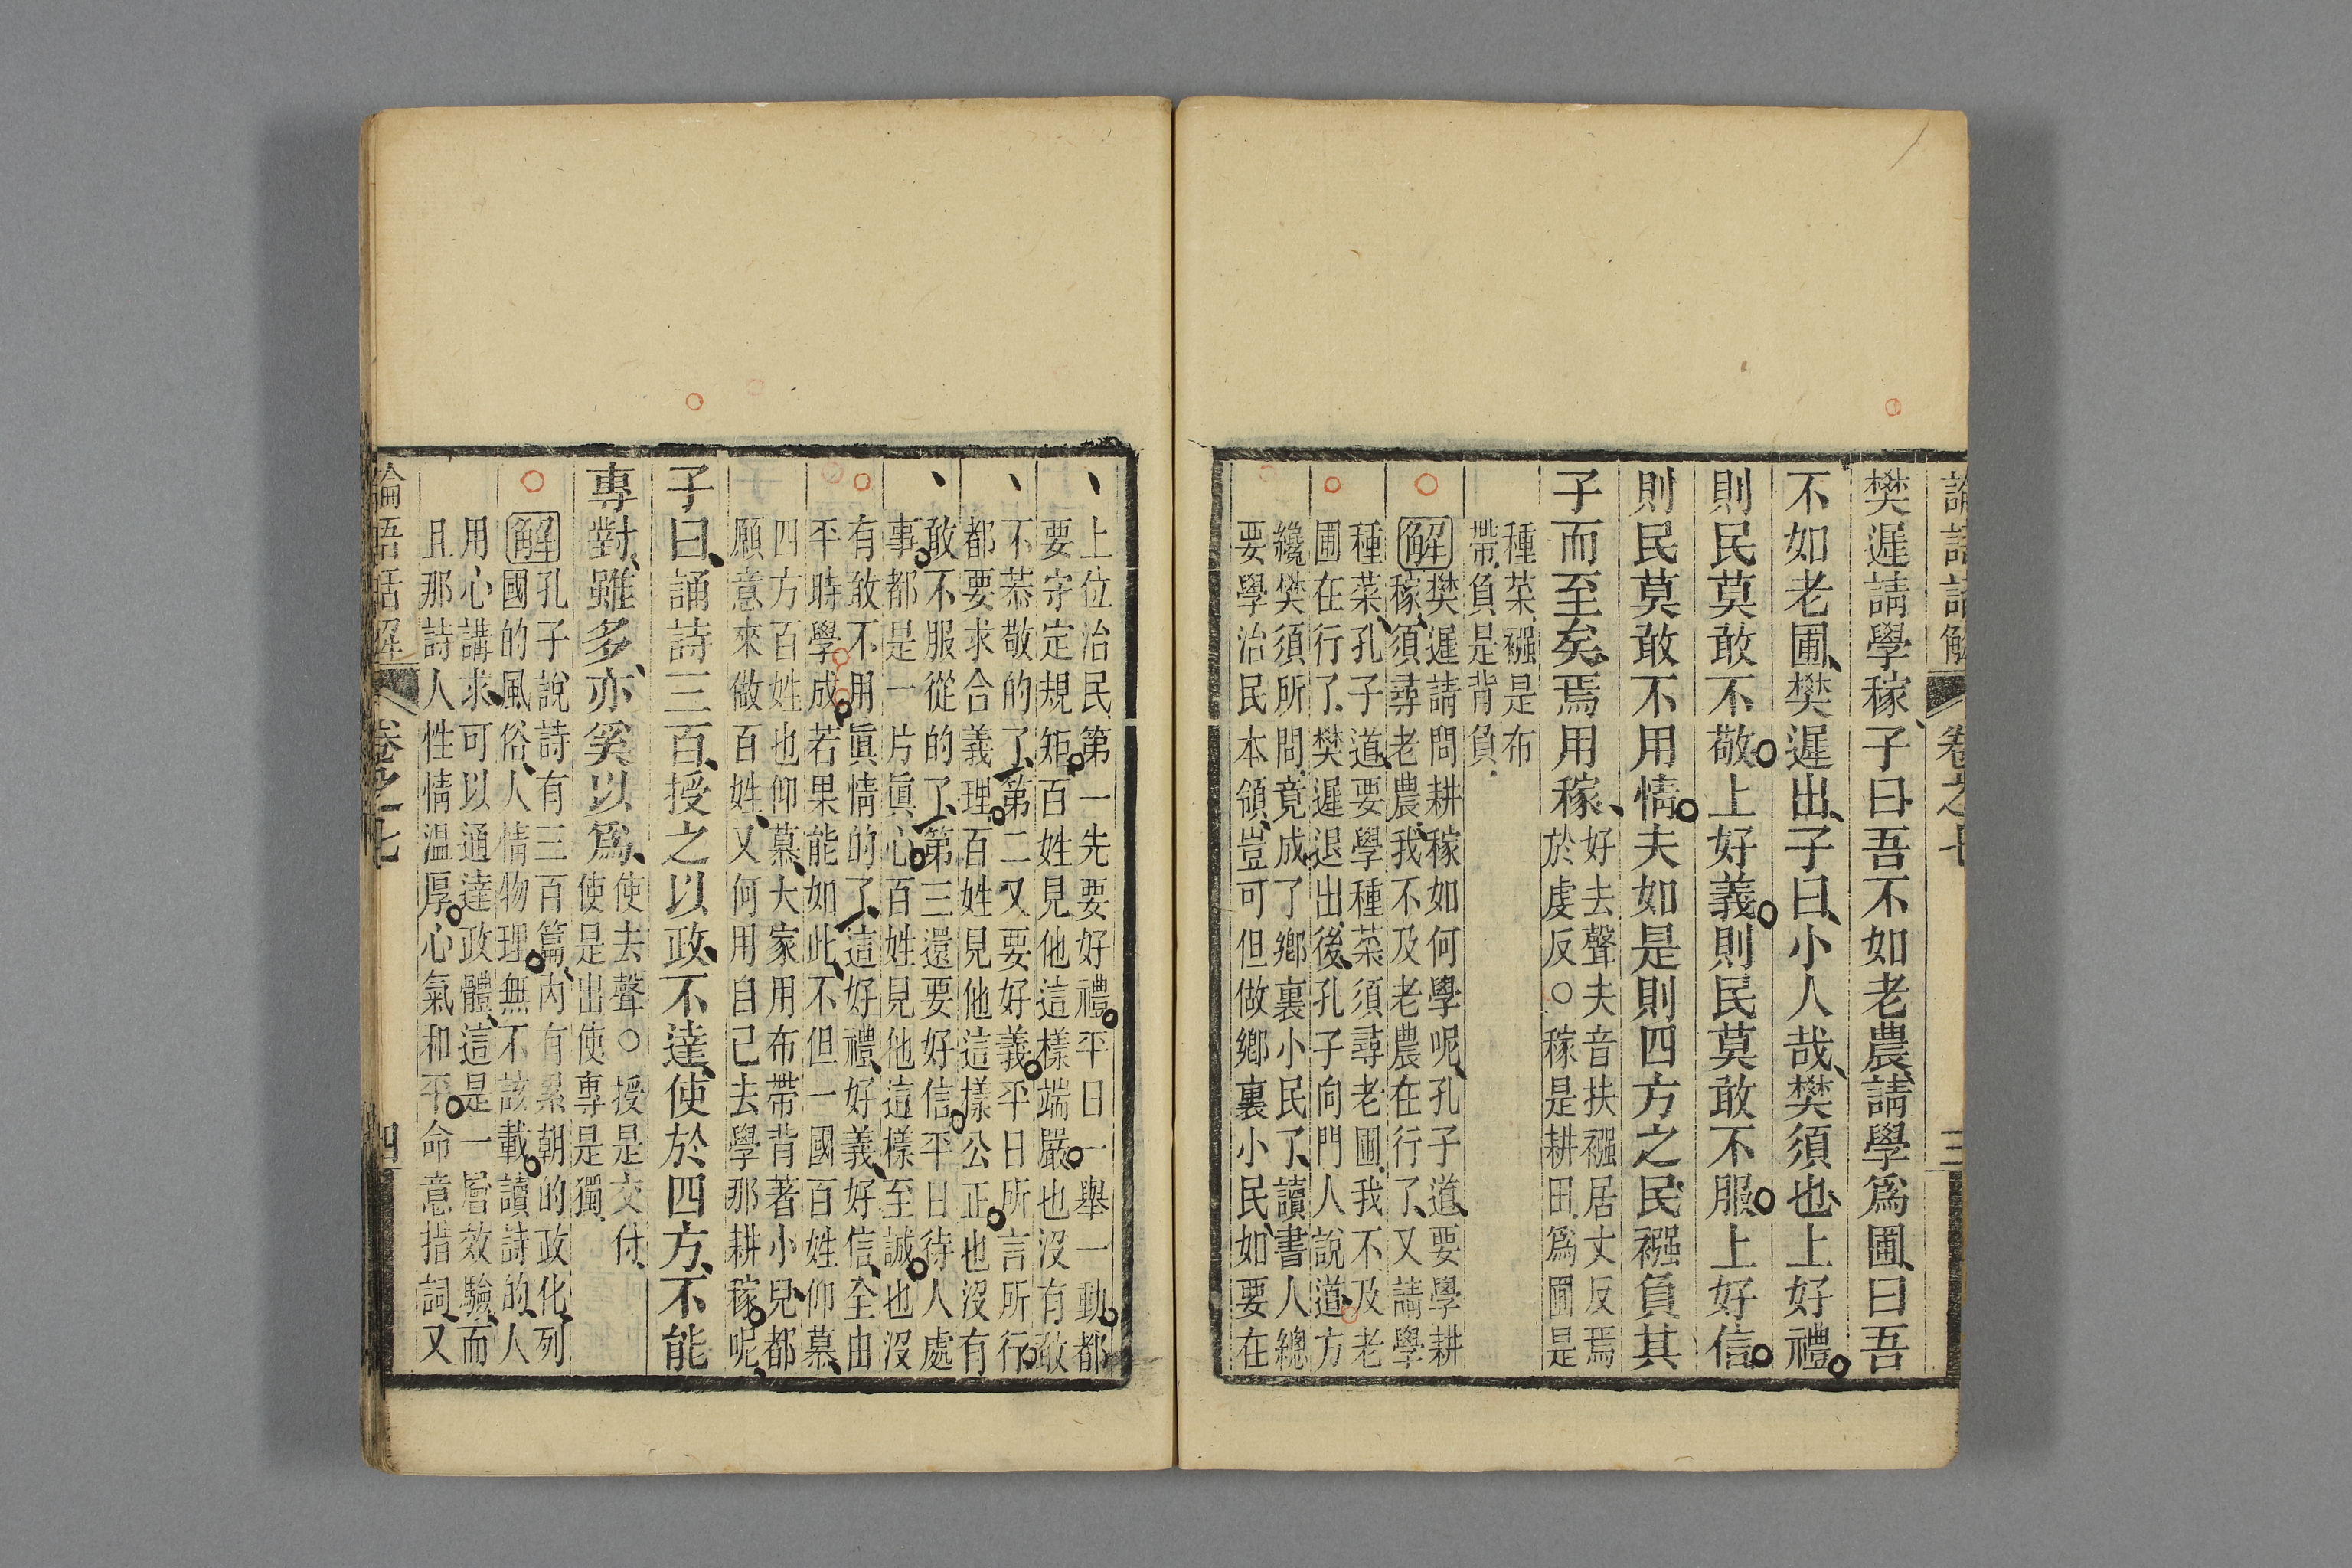 論語話解 卷之七 三
樊遲請學稼、子曰吾不如老農、請學爲圃、曰吾
不如老圃、樊遲出、子曰、小人哉、樊須也、上好禮
則民莫敢不敬上好義則民莫敢不服上好信
則民莫敢不用情夫如是則四方之民襁負其
子而至矣、焉用稼、
好去聲夫音扶襁居丈反焉
於虔反○稼是耕田、爲圃是
種菜、襁是布
帶、負是背負、
解
樊遲請問耕稼如何學呢、孔子道、要學耕
稼、須尋老農、我不及老農在行了、又請學
種菜、孔子道、要學種菜須尋老圃、我不及老
圃在行了、樊遲退出後、孔子向門人說道方
纔樊須所問、竟成了鄉裏小民了、讀書人總
要學治民本領、豈可但做鄉裏小民、如要在
上位治民第一先要好禮平日一舉一動都
要守定規矩百姓見他這樣端嚴也沒有敢
不恭敬的了、第二又要好義平日所言所行
都要求合義理百姓見他這樣公正也沒有
敢不服從的了、第三還要好信平日待人處
事都是一片眞心百姓見他這樣至誠也沒
有敢不用眞情的了、這好禮、好義、好信、全由
平時學成若果能如此、不但一國百姓仰慕、
四方百姓也仰慕、大家用布帶背著小兒、都
願意來做百姓、又何用自己去學那耕稼呢、
子曰、誦詩三百、授之以政、不達、使於四方、不能
專對、雖多、亦奚以爲、
使去聲○授是交付、
使是出使專是獨、
解
孔子說詩有三百篇、內有累朝的政化、列
國的風俗、人情物理無不該載讀詩的、人
用心講求、可以通達政體、這是一層效驗、而
且那詩人性情溫厚心氣和平命意措詞、又
論語話解 卷之七 四